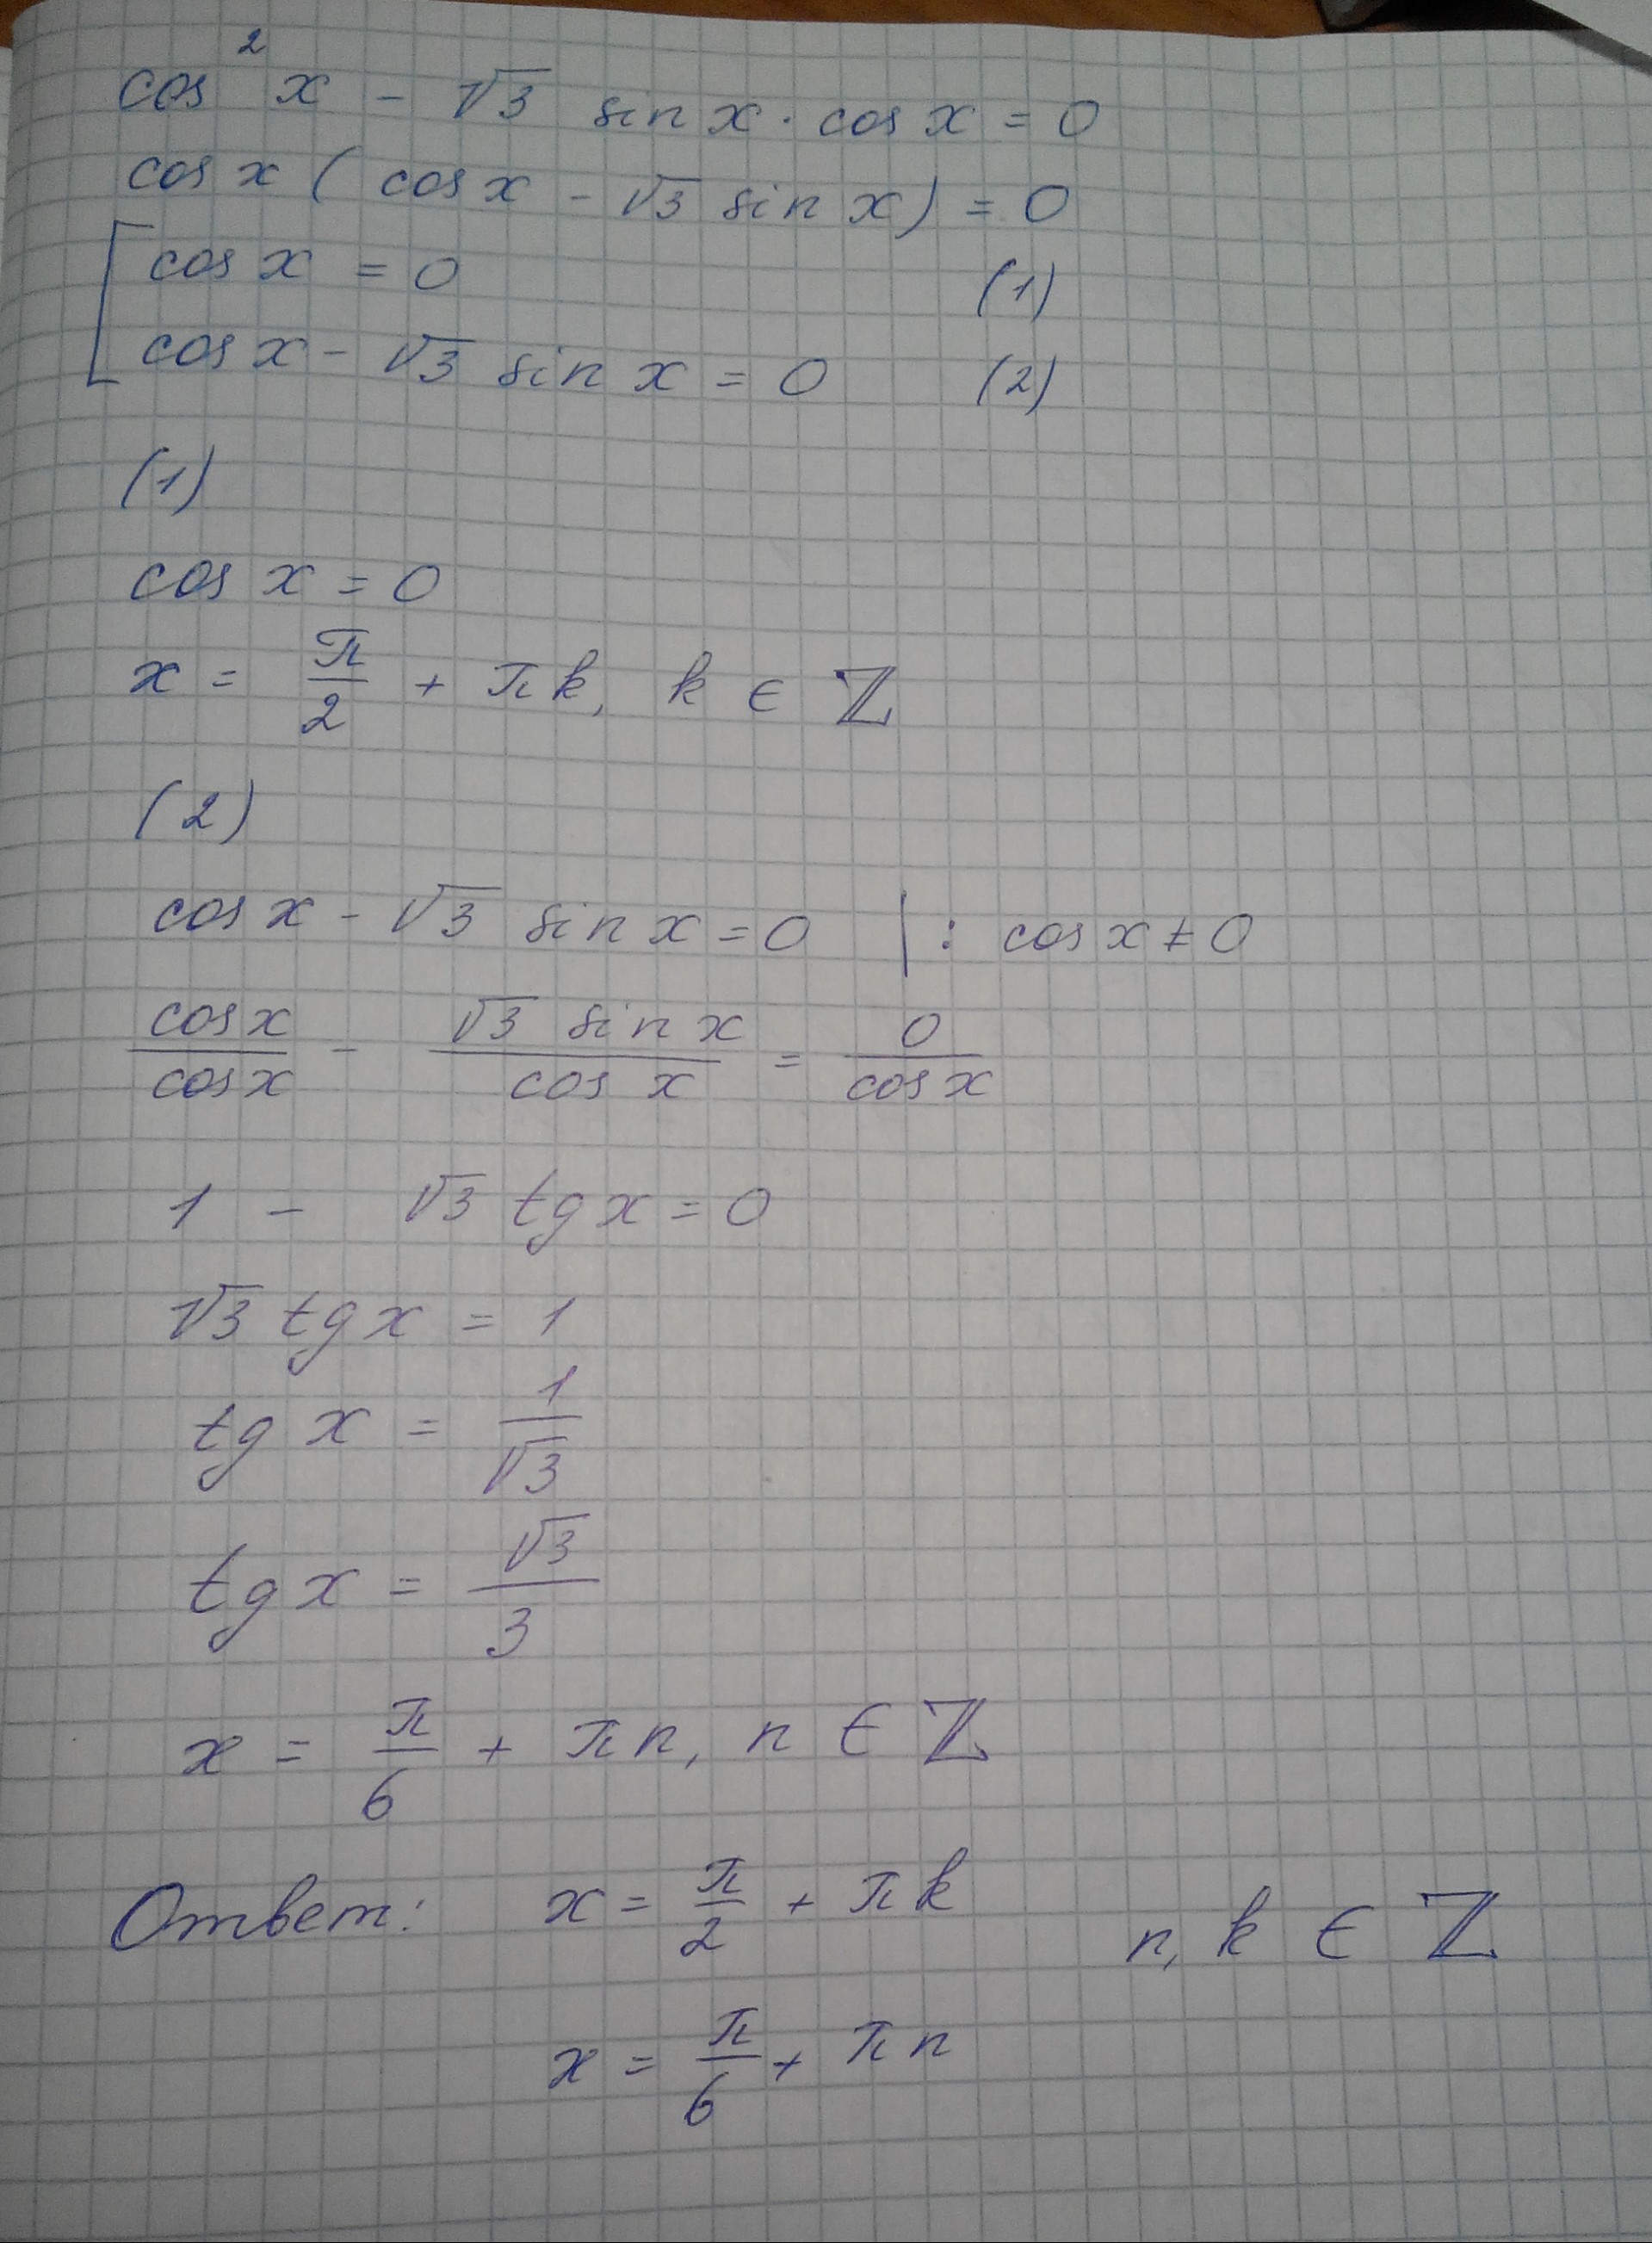 cos² x - √3 sin x · cos x = 0
cos x ( cos x - √3 sin x ) = 0
[ cos x = 0 (1)
cos x - √3 sin x = 0 (2)
(1)
cos x = 0
x = π/2 + πk, k ∈ ℤ
(2)
cos x - √3 sin x = 0 | : cos x ≠ 0
cos x / cos x - √3 sin x / cos x = 0 / cos x
1 - √3 tg x = 0
√3 tg x = 1
tg x = 1/√3
tg x = √3/3
x = π/6 + πn, n ∈ ℤ
Ответ: x = π/2 + πk n, k ∈ ℤ
x = π/6 + πn